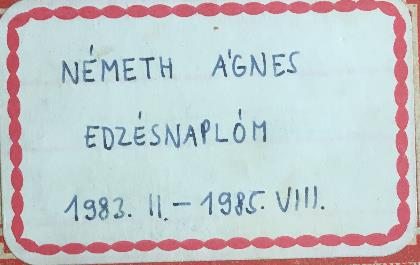 NÉMETH ÁGNES
EDZÉSNAPLÓM
1983. II. - 1985. VIII.